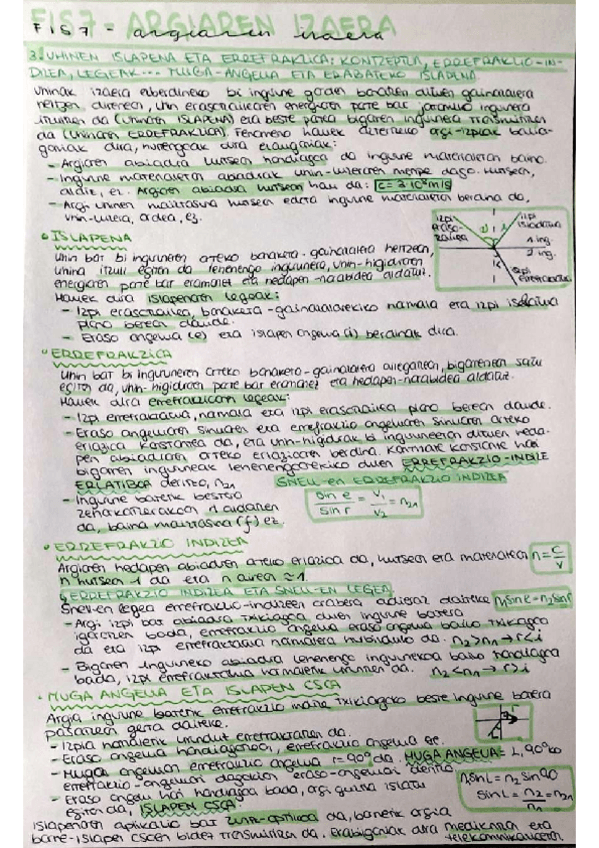 FIS7 - ARGIAREN IZAERA
FIS7 - argiaren izaera
3. UHINEN ISLAPENA ETA ERREFRAKZIOA: KONTZEPTUA, ERREFRAKZIO-IN-
DIZEA, LEGEAK... MUGA-ANGELUA ETA ERABATEKO ISLAPENA
Uhinak izaera ezberdineko bi ingurune
heltzen direnean, uhin erasotzailearen energiaren parte bat jatorrizko ingurunera
itzultzen da (Uhinaren ISLAPENA) eta beste partea bigarren ingurunera transmititzen
da (Uhinaren ERREFRAKZIOA). Fenomeno hauek argi-izpiak
dira, hurrengoak dira ezaugarriak:
- Argiaren abiadura hutsean handiagoa da ingurune materialetan baino.
- Ingurune materialetan abiadurak uhin-luzeraren menpe dago. Hutsean,
aldiz, ez. Argiaren abiadura hutsean hau da: c = 3·10⁸ m/s
- Argi uhinen maiztasuna hutsean edota ingurune materialetan berdina da,
uhin-luzera, ordea, ez.
izpi
eraso-
tzailea
izpi
islatua
1. ing.
2. ing.
izpi
errefraktatua
ISLAPENA
Uhin bat bi inguruneren arteko banaketa-gainazalera heltzean,
uhina itzuli egiten da lehenengo ingurunera, uhin-higiduraren
energiaren parte bat eramanez eta hedapen-norabidea aldatuz.
Hauek dira islapenaren legeak:
- Izpi erasotzailea, banaketa-gainazalarekiko normala eta izpi islatua
plano berean daude.
- Eraso angelua (e) eta islapen angelua (i) berdinak dira.
ERREFRAKZIOA
Uhin bat bi inguruneren arteko banaketa-gainazalera ailegatzean, bigarrenean sartu
egiten da, uhin-higiduraren parte bat eramanez eta hedapen-norabidea aldatuz.
Hauek dira errefrakzioaren legeak:
- Izpi errefraktatua, normala eta izpi erasotzailea plano berean daude.
- Eraso angeluaren sinuaren eta errefrakzio angeluaren sinuaren arteko
erlazioa konstantea da, eta uhin-higidurak bi inguruneetan dituen heda-
pen abiaduren arteko erlazioaren berdina. Konstante horri
bigarren inguruneak lehenengoarekiko duen ERREFRAKZIO-INDIZE
ERLATIBOA deritzo, n₂₁
SNELL-en ERREFRAKZIO INDIZEA
- Ingurune batetik bestera
zeharkatzerakoan λ aldatzen
da, baina maiztasuna (f) ez.
sin e / sin r = v₁ / v₂ = n₂₁
ERREFRAKZIO INDIZEA
Argiaren hedapen abiaduren arteko erlazioa da, hutsean eta materialean n = c/v
n hutsean 1 da eta n airean ≈ 1.
ERREFRAKZIO INDIZEA ETA SNELL-EN LEGEA
Snell-en legea errefrakzio-indizeen arabera adieraz daiteke n₁sin i = n₂sin r
- Argi izpi bat abiadura txikiagoa duen ingurune batera
igarotzen bada, errefrakzio angelua eraso angelua baino txikiagoa
da eta izpi errefraktatua normalera hurbilduko da. n₂>n₁ → r<i
- Bigarren inguruneko abiadura lehenengo ingurunekoa baino handiagoa
bada, izpi errefraktatua normaletik urruntzen da. n₂<n₁ → r>i
MUGA ANGELUA ETA ISLAPEN OSOA
Argia ingurune batetik errefrakzio maila txikiagoko beste ingurune batera
pasatzean gerta daiteke.
- Izpia normaletik urrundut errefraktatzen da.
- Eraso angelua handiagotzean, errefrakzio angelua ere.
- Muga angeluan errefrakzio angelua r=90° da. MUGA ANGELUA = L, 90°ko
errefrakzio-angeluari dagokion eraso-angeluari deritzo
- Eraso angelu hori handiagoa bada, argi guztia islatu
egiten da, ISLAPEN OSOA.
n₁ sin L = n₂ sin 90
sin L = n₂/n₁ = n₂₁
islapenaren aplikazio bat zuntz-optikoa da, barnetik argia
barne-islapen osoen bidez transmititzen da. Erabilgarriak dira medikuntza eta
telekomunikazioetan.